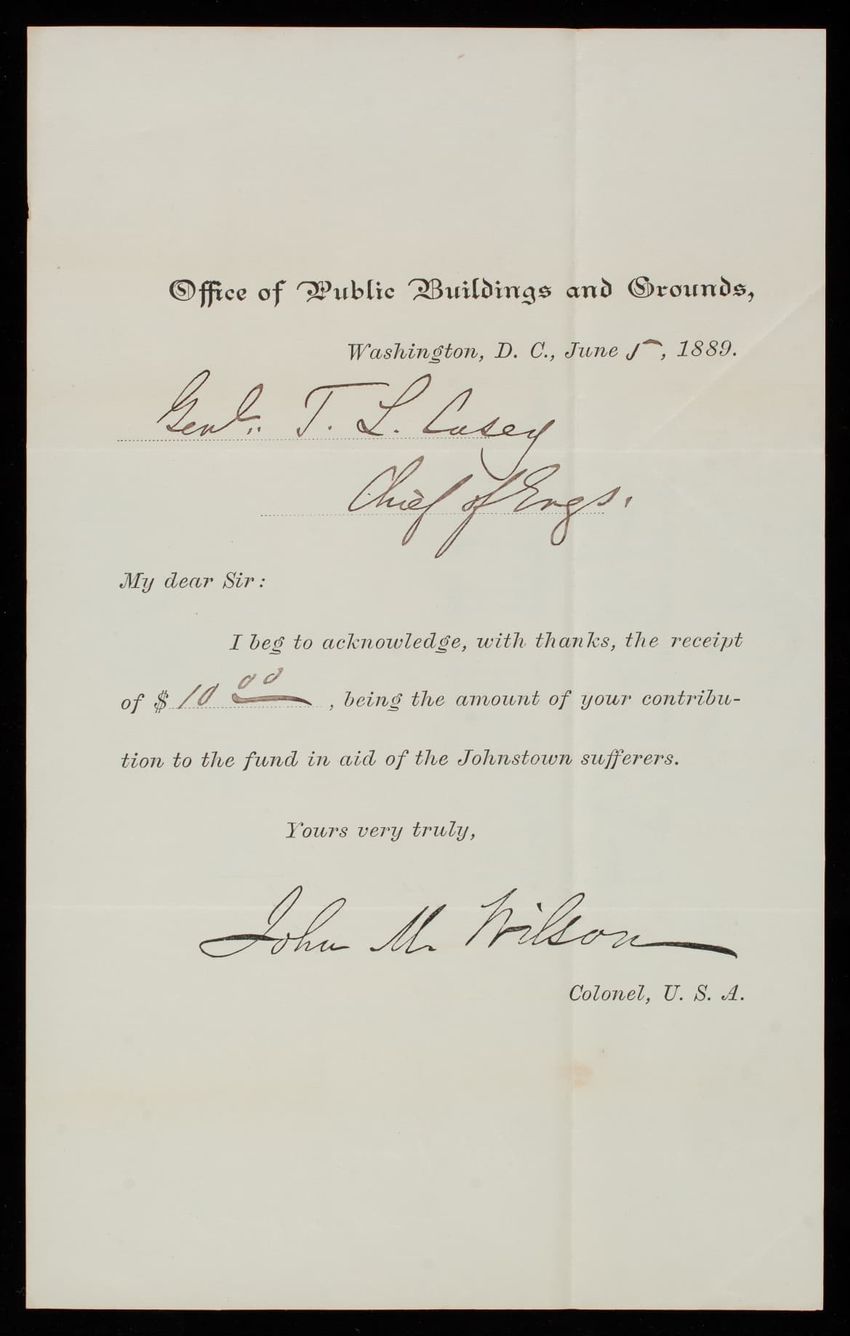 Office of Public Buildings and Grounds,
Washington, D. C., June 5, 1889.
Genl. T. L. Casey
Chief of Engs.
My dear Sir:
I beg to acknowledge, with thanks, the receipt
of $ 10 00, being the amount of your contribu-
tion to the fund in aid of the Johnstown sufferers.
Yours very truly,
John M. Wilson
Colonel, U. S. A.